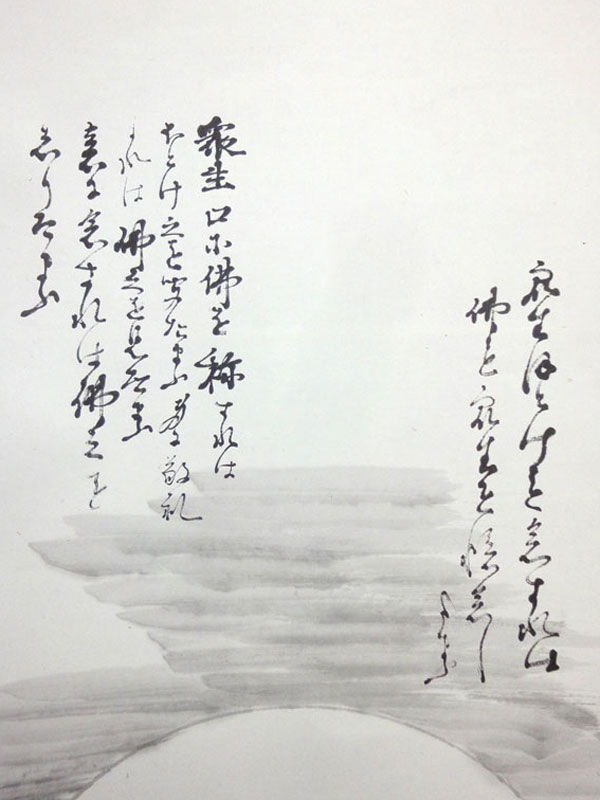 衆生ほとけを念すれは
佛も衆生を憶念し
たまふ
衆生口に佛を称すれは
ほとけ之を聞たまふ身に敬礼
すれは佛之を見たまふ
意に念すれは佛之を
しりたまふ